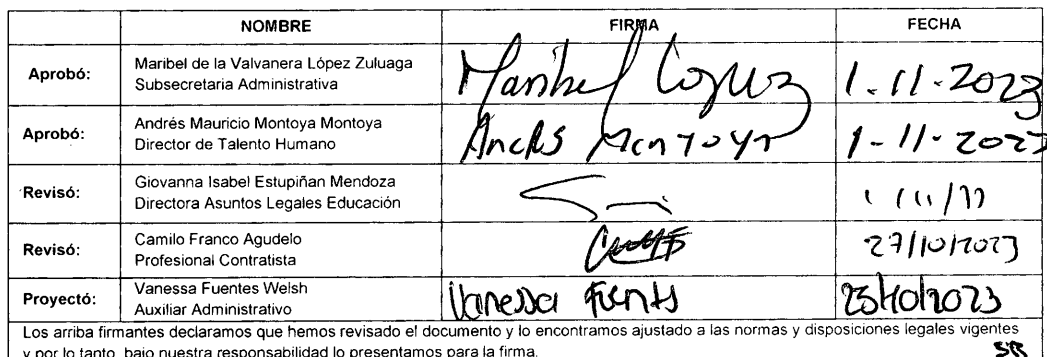 NOMBRE FIRMA FECHA
Aprobó: Maribel de la Valvanera López Zuluaga
Subsecretaria Administrativa
Maribel López 1-11-2023
Aprobó: Andrés Mauricio Montoya Montoya
Director de Talento Humano
Andrés Montoya 1-11-2023
Revisó: Giovanna Isabel Estupiñan Mendoza
Directora Asuntos Legales Educación
Revisó: Camilo Franco Agudelo
Profesional Contratista
27/10/2023
Proyectó: Vanessa Fuentes Welsh
Auxiliar Administrativo
Vanessa Fuentes 25/10/2023
Los arriba firmantes declaramos que hemos revisado el documento y lo encontramos ajustado a las normas y disposiciones legales vigentes
y por lo tanto, bajo nuestra responsabilidad lo presentamos para la firma.